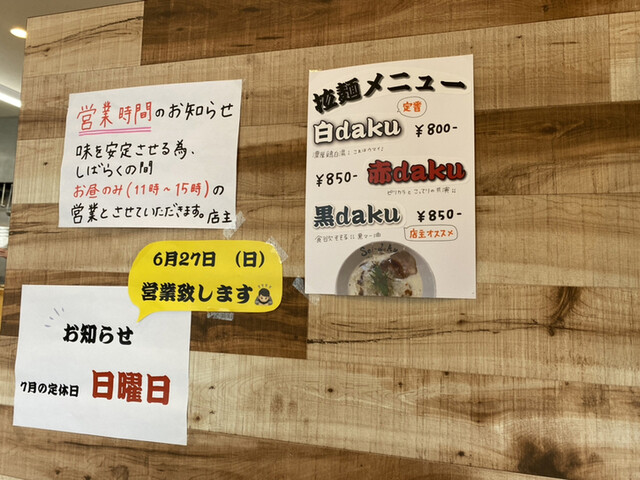 営業時間のお知らせ
味を安定させる為、
しばらくの間
お昼のみ(11時〜15時)の
営業とさせていただきます。店主
6月27日 (日)
営業致します
お知らせ
7月の定休日 日曜日
拉麺メニュー
定番
白daku ¥800-
¥850- 赤daku
黒daku ¥850-
店主オススメ